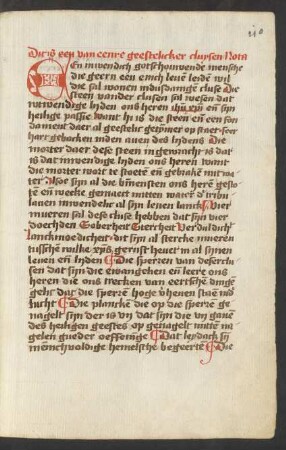 110
Dit is een van eenre geestelicker cluysen Nota
Een inwendich gotschouwende mensche
die geern een enich leuen leiden wil
die sal wonen in dusdanige cluse Die
steen van der clusen sal wesen dat
vutwendige lyden ons heren ihu xpi en sijn
heilige passie want hi is die steen en een fon
dament daer al geestelic getymer op staet seer
hart gebacken in den auen des lydens Die
morter daer dese steen in gewracht is dat
is dat inwendige lyden ons heren want
die morter wort te stoeten en gebaket mit wa
ter Alsoe sijn al die bynensten ons heren gesto
ten en weeke gemaect mitten water der tribu
lacien inwendich al sijn leuen lanck Vier
mueren sal dese cluse hebben dat sijn vier
doechden Soberheit Sterrheit Verduldich
Lancknoedicheit dit sijn al stercke mueren
die sperren van desertu
sen dat sijn die ewangelien en leere ons
heren die ons trecken van eertsche dinge
gelijc dat die sperren hoge vthenen staen
Die plancke die op die sperren ge
nagelt sijn der is vij dat sijn die vij gauen
des heiligen geestes op genagelt mitten na
gelen gueder oeffeninge Dat leydack sij
menichuoldige hemelsche begeerten Die